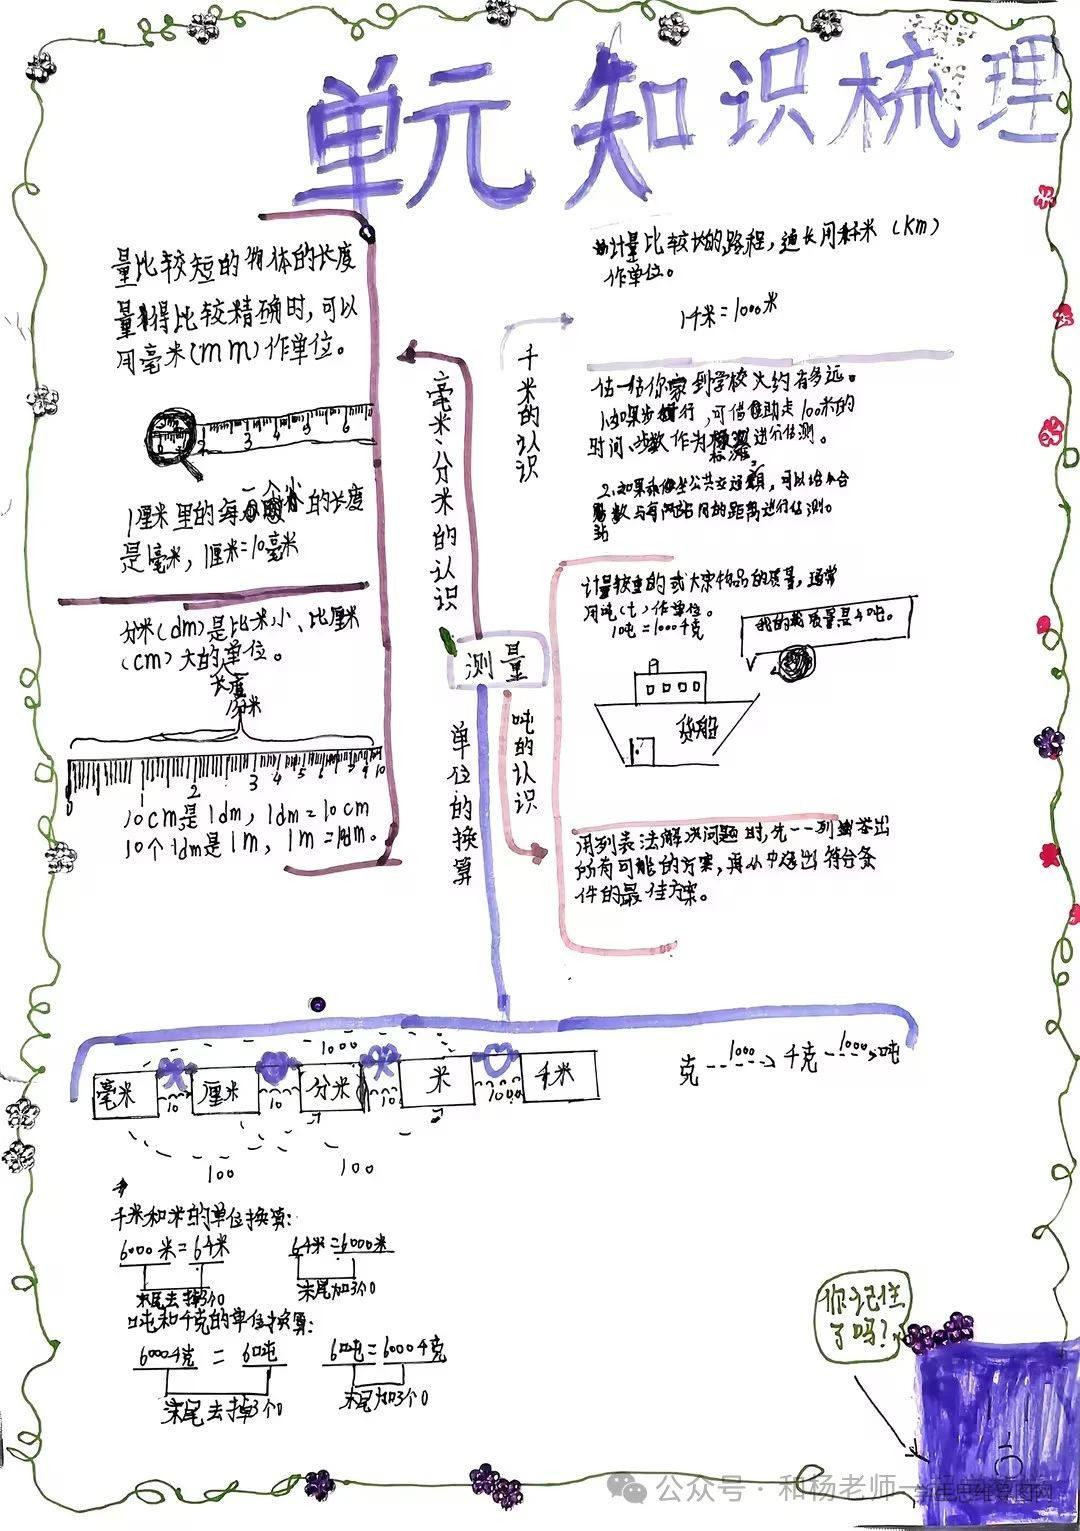 单元知识梳理
量比较短的物体的长度
量得比较精确时，可以
用毫米(mm)作单位。
2 3 4 5 6
1厘米里的每一个小的长度
是1毫米，1厘米=10毫米
分米(dm)是比米小、比厘米
(cm)大的单位。
长度
1分米
0 1 2 3 4 5 6 7 8 9 10
10cm是1dm，1dm=10cm
10个1dm是1m，1m=
毫米、分米的认识
测量
千米的认识
计量比较长的路程，通长用千米(Km)
作单位。
1千米=1000米
估一估你家到学校大约有多远。
1.如果步行，可借助走100米的
时间、步数作为标准进行估测。
2.如果乘坐公共交通，可以结合
站数与每两站间的距离进行估测。
吨的认识
计量较重的或大宗物品的质量，通常
用吨(t)作单位。
1吨=1000千克
我的载质量是4吨。
货船
用列表法解决问题时，先一一列举出
所有可能的方案，再从中选出符合条
件的最佳方案。
单位的换算
1000
毫米 10 厘米 10 分米 10 米 1000 千米
100 100
克 1000 千克 1000 吨
千米和米的单位换算：
6000米=6千米 6千米=6000米
末尾去掉3个0 末尾加3个0
吨和千克的单位换算：
6000千克=6吨 6吨=6000千克
末尾去掉3个0 末尾加3个0
你记住
了吗？
公众号·和杨老师一起学
生思维导图网